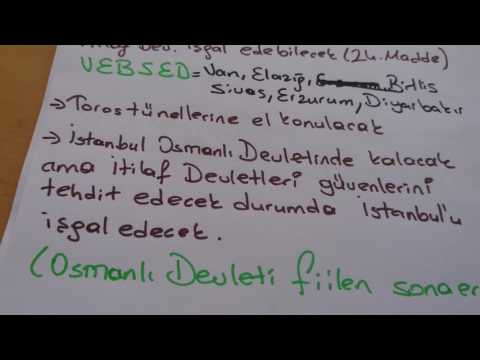 Dev. işgal edebilecek (24. Madde)
VEBSED = Van, Elazığ, Bitlis
Sivas, Erzurum, Diyarbakır
→ Toros tünellerine el konulacak
→ İstanbul Osmanlı Devletinde kalacak
ama İtilaf Devletleri güvenlerini
tehdit edecek durumda İstanbul'u
işgal edecek.
(Osmanlı Devleti fiilen sona er